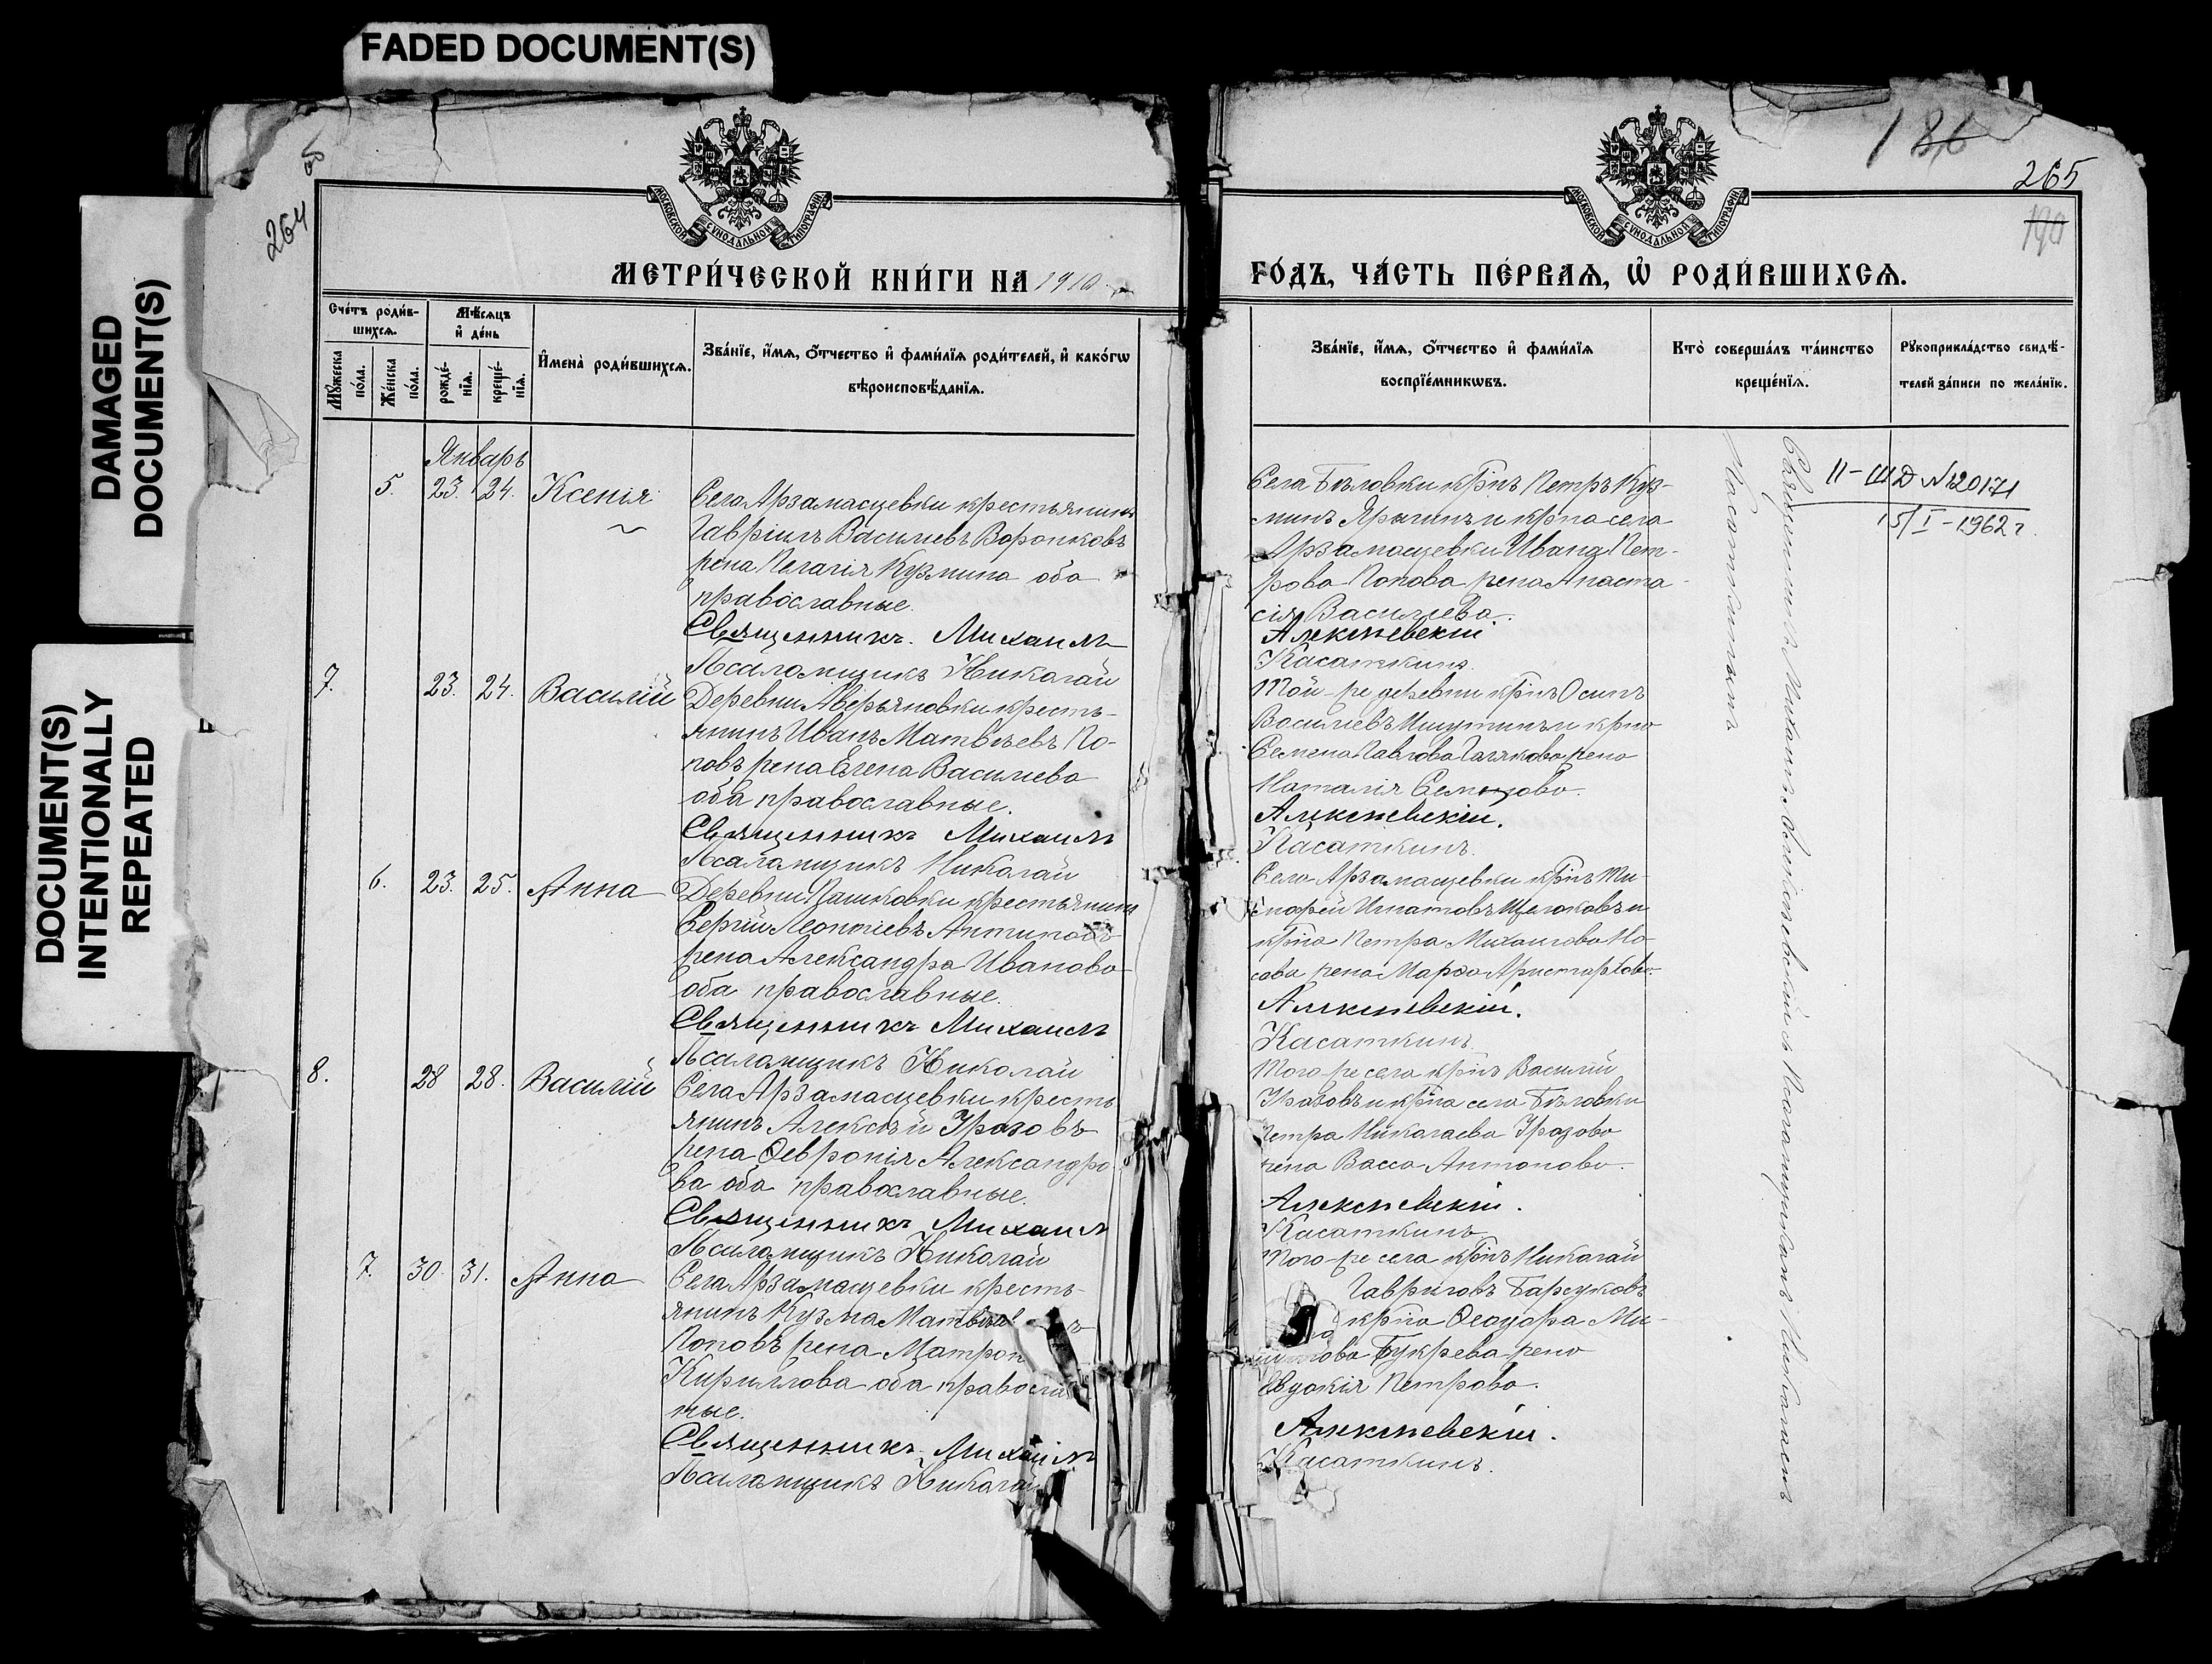 FADED DOCUMENT(S)
DAMAGED
DOCUMENT(S)
DOCUMENT(S)
INTENTIONALLY
REPEATED
264
МОСКОВСКОЙ СѴНОДАЛЬНОЙ ТИПОГРАФІИ
МЕТРИ́ЧЕСКОЙ КНИ́ГИ НА 1910
Сче́тъ роди́в-
шихсѧ.
Мѣ́сѧцъ
и҆ де́нь
Мꙋ́жеска
по́ла.
Же́нска
по́ла.
рожде́-
нїѧ.
креще́-
нїѧ.
И҆мена̀ роди́вшихсѧ.
Зва́нїе, и҆́мѧ, ѻ҆́тчество и҆ фами́лїѧ роди́телей, и҆ како́гѡ
вѣроисповѣ́данїѧ.
Январь
5. 23. 24. Ксенія
Села Арзамасцевки крестьянинъ
Гавріилъ Васильевъ Воронковъ
жена Пелагія Кузмина оба
православные.
Священникъ. Михаилъ
Псаломщикъ Николай
7. 23. 24. Василій
Деревни Аверьяновки кресть-
янинъ Иванъ Матвѣевъ По-
повъ жена Елена Васильева
оба православные.
Священникъ Михаилъ
Псаломщикъ Николай
6. 23. 25. Анна
Деревни Пашковки крестьянинъ
Сергій Леонтіевъ Антиповъ
жена Александра Иванова
оба православные.
Священникъ Михаилъ
Псаломщикъ Николай
8. 28 28. Василій
Села Арзамасцевки кресть
янинъ Алексѣй Уразовъ
жена Ѳевронія Александро
ва оба православные.
Священникъ Михаилъ
Псаломщикъ Николай
7. 30. 31. Анна
Села Арзамасцевки кресть-
янинъ Кузма Матвѣевъ
Поповъ жена Матрон
Кириллова оба правосла
ные.
Священникъ. Михаилъ
Псаломщикъ Николай
186
265
190
МОСКОВСКОЙ СѴНОДАЛЬНОЙ ТИПОГРАФІИ
ГО́ДЪ, ЧА́СТЬ ПЕ́РВАѦ, Ѡ҆ РОДИ́ВШИХСѦ.
Зва́нїе, и҆́мѧ, ѻ҆́тчество и҆ фами́лїѧ
воспрїе́мникѡвъ.
Кто̀ соверша́лъ та́инство
креще́нїѧ.
Рꙋкоприкла́дство свидѣ́-
телей за́писи по жела́нїю.
Села Бѣловки кр҃нъ Петръ Куз-
минъ Ярыгинъ и кр҃на села
Арзамасцевки Ивана Пет-
рова Попова жена Анаста-
сія Васильева.
Алексѣевскій
Касаткинъ.
Той-же деревни кр҃нъ Осипъ
Васильевъ Ишутинъ и кр҃на
Семена Павлова жена
Наталія Семенова.
Алексѣевскій.
Касаткинъ.
Села Арзамасцевки кр҃нъ Ти-
мофей Игнатовъ Щелоковъ и
кр҃на Петра Михаилова Но-
сова жена Марѳа Аристархова.
Алексѣевскій.
Касаткинъ.
Того-же села кр҃нъ Василій
Уразовъ и кр҃на села Бѣловки
Петра Николаева Уразова
жена Васса Антонова.
Алексѣевскій.
Касаткинъ
Того-же села кр҃нъ Николай
Гавриловъ Барсуковъ
кр҃на Ѳеодора Ми-
Букрева жена
Евдокія Петрова.
Алексѣевскій.
Касаткинъ.
Священникъ Михаилъ Алексѣевскій съ Псаломщикомъ Николаемъ
Касаткинымъ
II-ШД №120171
15/I-1962 г.